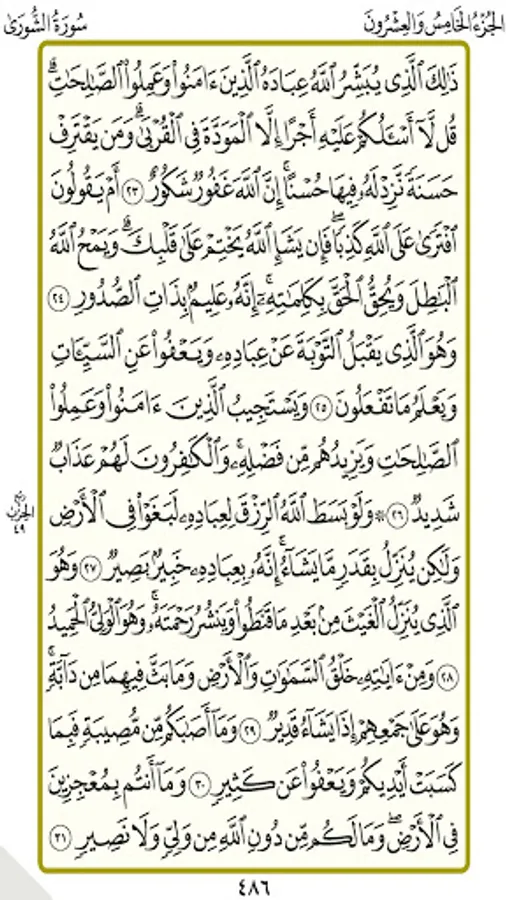 الجزء الخامس والعشرون
سورة الشورى
ذَٰلِكَ ٱلَّذِى يُبَشِّرُ ٱللَّهُ عِبَادَهُ ٱلَّذِينَ ءَامَنُوا۟ وَعَمِلُوا۟ ٱلصَّـٰلِحَـٰتِۗ
قُل لَّآ أَسْـَٔلُكُمْ عَلَيْهِ أَجْرًا إِلَّا ٱلْمَوَدَّةَ فِى ٱلْقُرْبَىٰۗ وَمَن يَقْتَرِفْ
حَسَنَةً نَّزِدْ لَهُۥ فِيهَا حُسْنًاۚ إِنَّ ٱللَّهَ غَفُورٌ شَكُورٌ ٢٣ أَمْ يَقُولُونَ
ٱفْتَرَىٰ عَلَى ٱللَّهِ كَذِبًاۖ فَإِن يَشَإِ ٱللَّهُ يَخْتِمْ عَلَىٰ قَلْبِكَۗ وَيَمْحُ ٱللَّهُ
ٱلْبَـٰطِلَ وَيُحِقُّ ٱلْحَقَّ بِكَلِمَـٰتِهِۦٓۚ إِنَّهُۥ عَلِيمٌۢ بِذَاتِ ٱلصُّدُورِ ٢٤
وَهُوَ ٱلَّذِى يَقْبَلُ ٱلتَّوْبَةَ عَنْ عِبَادِهِۦ وَيَعْفُوا۟ عَنِ ٱلسَّيِّـَٔاتِ
وَيَعْلَمُ مَا تَفْعَلُونَ ٢٥ وَيَسْتَجِيبُ ٱلَّذِينَ ءَامَنُوا۟ وَعَمِلُوا۟
ٱلصَّـٰلِحَـٰتِ وَيَزِيدُهُم مِّن فَضْلِهِۦۚ وَٱلْكَـٰفِرُونَ لَهُمْ عَذَابٌ
شَدِيدٌ ٢٦ ۞ وَلَوْ بَسَطَ ٱللَّهُ ٱلرِّزْقَ لِعِبَادِهِۦ لَبَغَوْا۟ فِى ٱلْأَرْضِ
ربع
الحزب
٤٩
وَلَـٰكِن يُنَزِّلُ بِقَدَرٍ مَّا يَشَآءُۚ إِنَّهُۥ بِعِبَادِهِۦ خَبِيرٌۢ بَصِيرٌ ٢٧ وَهُوَ
ٱلَّذِى يُنَزِّلُ ٱلْغَيْثَ مِنۢ بَعْدِ مَا قَنَطُوا۟ وَيَنشُرُ رَحْمَتَهُۥۚ وَهُوَ ٱلْوَلِىُّ ٱلْحَمِيدُ
٢٨ وَمِنْ ءَايَـٰتِهِۦ خَلْقُ ٱلسَّمَـٰوَٰتِ وَٱلْأَرْضِ وَمَا بَثَّ فِيهِمَا مِن دَآبَّةٍۚ
وَهُوَ عَلَىٰ جَمْعِهِمْ إِذَا يَشَآءُ قَدِيرٌ ٢٩ وَمَآ أَصَـٰبَكُم مِّن مُّصِيبَةٍ فَبِمَا
كَسَبَتْ أَيْدِيكُمْ وَيَعْفُوا۟ عَن كَثِيرٍ ٣٠ وَمَآ أَنتُم بِمُعْجِزِينَ
فِى ٱلْأَرْضِۖ وَمَا لَكُم مِّن دُونِ ٱللَّهِ مِن وَلِىٍّ وَلَا نَصِيرٍ ٣١
٤٨٦